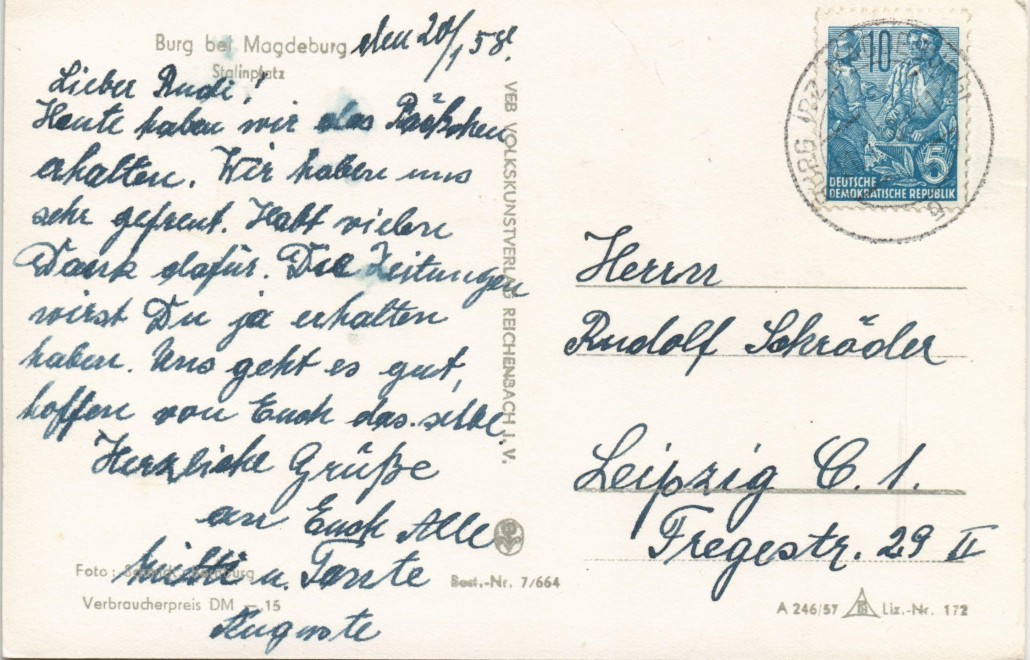 Burg bei Magdeburg
Stalinplatz
den 20/1 58.
Lieber Rudi!
Heute haben wir das Päckchen
erhalten. Wir haben uns
sehr gefreut. Habt vielen
Dank dafür. Die Zeitungen
wirst Du ja erhalten
haben. Uns geht es gut,
hoffen von Euch das selbe.
Herzliche Grüße
an Euch Alle
u. Tante
Auguste
Foto:
Verbraucherpreis DM –.15
Best.-Nr. 7/664
VEB VOLKSKUNSTVERLAG REICHENBACH i. V.
10
5
DEUTSCHE
DEMOKRATISCHE REPUBLIK
BURG
Herrn
Rudolf Schröder
Leipzig C. 1.
Fregestr. 29 II
A 246/57
Liz.-Nr. 172